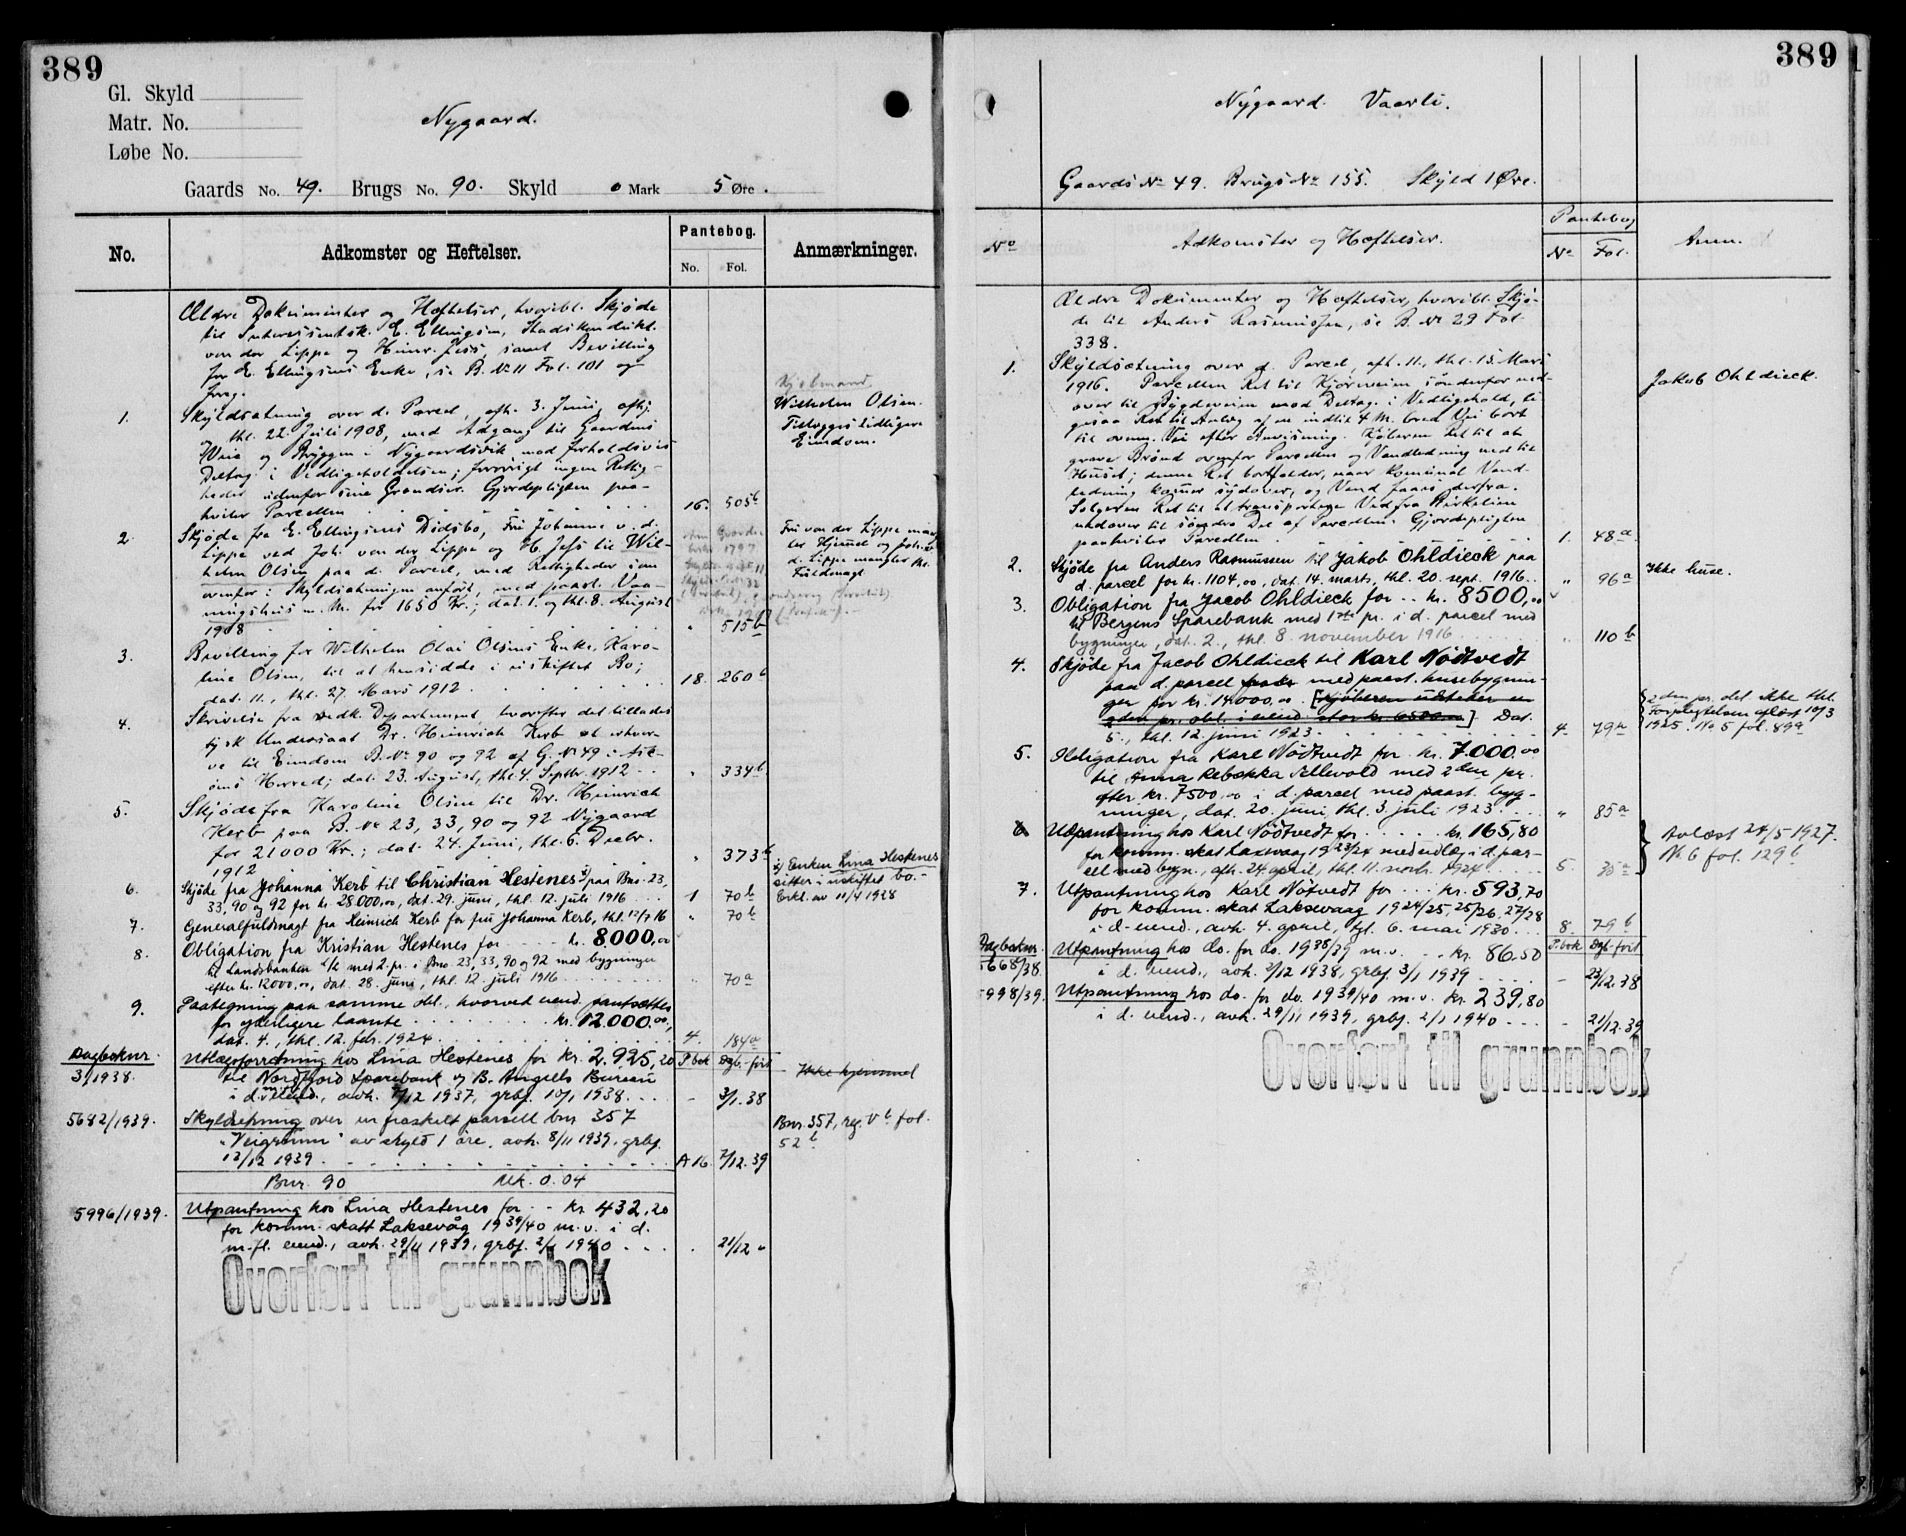 389
Gl. Skyld
Matr. No.
Løbe No.
Nygaard.
Gaards No. 49. Brugs No. 90. Skyld 0 Mark 5 Øre.
No. Adkomster og Heftelser. Pantebog. No. Fol. Anmærkninger.
Ældre Dokumenter og Hæftelser, hvoribl. Skjøde
til Interessentsk. E. Ellingsen, Stadskonduktør
von der Lippe og Henr. Jess, samt Bevilling
for E. Ellingsens Enke, se B. No 11 Fol. 101 og
forrg.
1. Skyldsætning over d. Parcel, afh. 3. Juni, afhj.
thl. 22. Juli 1908, med Adgang til Gaardens
Veie og Bryggen i Nygaardsvik mod forholdsvis
Deltag. i Vedligeholdelsen; forøvrigt ingen Rettig-
heder udenfor sine Grændser. Gjerdepligten paa-
hviler Parcellen 16. 505b
Wilhelm Olsen
Tillægges tidligere
Eiendom.
2. Skjøde fra E. Ellingsens Dødsbo, Fru Johanne v. d.
Lippe ved Joh. von der Lippe og H. Jess til Wil-
helm Olsen paa d. Parcel, med Rettigheder som
ovenfor i Skyldsætningen anført, med paast. Vaa-
ningshus m. M. for 1650 Kr.; dat. 1. og thl. 8. August
1908 " 515b
Fru von der Lippe mang-
ler Hjemmel og Joh. v.
d. Lippe mangler thl.
Fuldmagt
3. Bevilling for Wilhelm Olai Olsens Enke, Karo-
line Olsen, til at hensidde i uskiftet Bo;
dat. 11., thl. 27. Mars 1912 18. 260b
4. Skrivelse fra vedk. Departement, hvorefter det tillades
tysk Undersaat Dr. Heinrich Kerb at erhver-
ve til Eiendom B. No 90 og 92 af G. No 49 i Ask-
øens Herred; dat. 23. August, thl. 4. Septbr. 1912 " 334b
5. Skjøde fra Karoline Olsen til Dr. Heinrich
Kerb paa B. No 23, 33, 90 og 92 Nygaard
for 21000 Kr.; dat. 24. Juni, thl. 6. Decbr.
1912 " 373b
6. Skjøde fra Johanna Kerb til Christian Hestenes x) paa Bno. 23,
33, 90 og 92 for kr. 28.000,00, dat. 29. juni, thl. 12. juli 1916 1 70b
x) Enken Lina Hestenes
sitter i uskiftet bo.-
Erkl. av 11/4 1928
7. Generalfuldmagt fra Heinrich Kerb for fru Johanna Kerb, thl. 12/7 16 " 70b
8. Obligation fra Kristian Hestenes for kr. 8000,00
til Landsbanken A/S med 2. pr. i Bno. 23, 33, 90 og 92 med bygninger
efter kr. 12000,00, dat. 28. juni, thl. 12. juli 1916 " 70a
9. Paategning paa samme obl., hvorved eiend. pantsættes
for yderligere laante kr. 12.000,00,
dat. 4., thl. 12. febr. 1924 4. 184a
Dagboknr. 3/1938. Utlægsforretning hos Lina Hestenes for kr. 2.925,20 P.bok Dgb.-ført
til Nordfjord Sparebank og B. Angells Bureau Ikke hjemmel
i d. m.fl. eiend., avh. 7/12 1937, grbf. 10/1 1938. - 3/1.38
5682/1939. Skyldretning over en fraskilt parsell bnr 357
"Veigrunn" av skyld 1 øre, avh. 8/11 1939, grbf.
12/12 1939. A 16 7/12.39
Bnr. 357, reg. Vb fol.
52b
Bnr. 90 Mk. 0.04
5996/1939. Utpantning hos Lina Hestenes for kr 432,20
for komm. skatt Laksevåg 1939/40 m.v. i d.
m.fl. eiend., avh. 29/11 1939, grbf. 2/1 1940 . 21/12 "
Overført til grunnbok
389
Nygaard. Vaarli.
Gaards No 49. Brugs No 155. Skyld 1 Øre.
No Adkomster og Hæftelser. Pantebog No Fol. Anm.
Ældre Dokumenter og Hæftelser, hvoribl. Skjø-
de til Anders Rasmussen, se B. No 29 Fol.
338.
1. Skyldsætning over d. Parcel, afh. 11., thl. 15. Mars
1916. Parcellen Ret til Kjøreveien søndenfor ned-
over til Bygdeveien mod Deltag. i Vedligehold, li-
gesaa Ret til Anlæg af en indtil 4 M. bred Vei bort
til ovenn. Vei efter Anvisning. Kjøberen Ret til at
grave Brønd ovenfor Parcellen og Vandledning ned til
Huset; denne Ret bortfalder, naar kommunal Vand-
ledning kommer sydover, og Vand faaes derfra.
Sælgeren Ret til at transportere Ved fra Birkelien
nedover til søndre Del af Parcellen. Gjerdepligten
paahviler Parcellen 1. 48a
Jakob Ohldieck.
2. Skjøde fra Anders Rasmussen til Jakob Ohldieck paa
d. parcel for kr. 1104,00, dat. 14. marts, thl. 20. sept. 1916 " 96a Ikke huse.
3. Obligation fra Jacob Ohldieck for kr. 8500,00
til Bergens Sparebank med 1ste pr. i d. parcel med
bygninger, dat. 2., thl. 8. november 1916 " 110b
4. Skjøde fra Jacob Ohldieck til Karl Nödtvedt
paa d. parcel med paast. husebygnin-
ger for kr. 14000,00 [kjøberen udsteder en
2den pr. obl. i eiend. stor kr. 6500,00]. Dat.
5., thl. 12. juni 1923 4. 79a
2den pr. obl. ikke thl.
Forpligtelsen aflæst 10/3
1925. No 5 fol. 89a
5. Obligation fra Karl Nödtvedt for kr. 7.000,00
til Anna Rebekka Tellevold med 2den pr.
efter kr. 7500,00 i d. parcel med paast. byg-
ninger, dat. 20. juni, thl. 3. juli 1923 " 85a
6. Utpantning hos Karl Nödtvedt for kr. 165,80
for komm. skat Laxevaag 1923/24 med udlæg i d. par-
cel med bygn., afh. 24. april, thl. 11. novb. 1924 5. 35a
Avlæst 24/5 1927.
No 6 fol. 129b
7. Utpantning hos Karl Nötvedt for kr. 593,70
for komm. skat Laksevaag 1924/25, 25/26, 27/28
i d. eiend., avh. 4. april, tgl. 6. mai 1930 8. 79b
Dagboknr. 5668/38. Utpantning hos do. for do. 1938/39 m.v. kr. 86.50 P.bok Dgb.-ført
i d. eiend., avh. 2/12 1938, grbf. 3/1 1939 - 23/12.38
5998/39. Utpantning hos do. for do. 1939/40 m.v. kr. 239,80
i d. eiend., avh. 29/11 1939, grbf. 2/1 1940 - 21/12.39
Overført til grunnbok